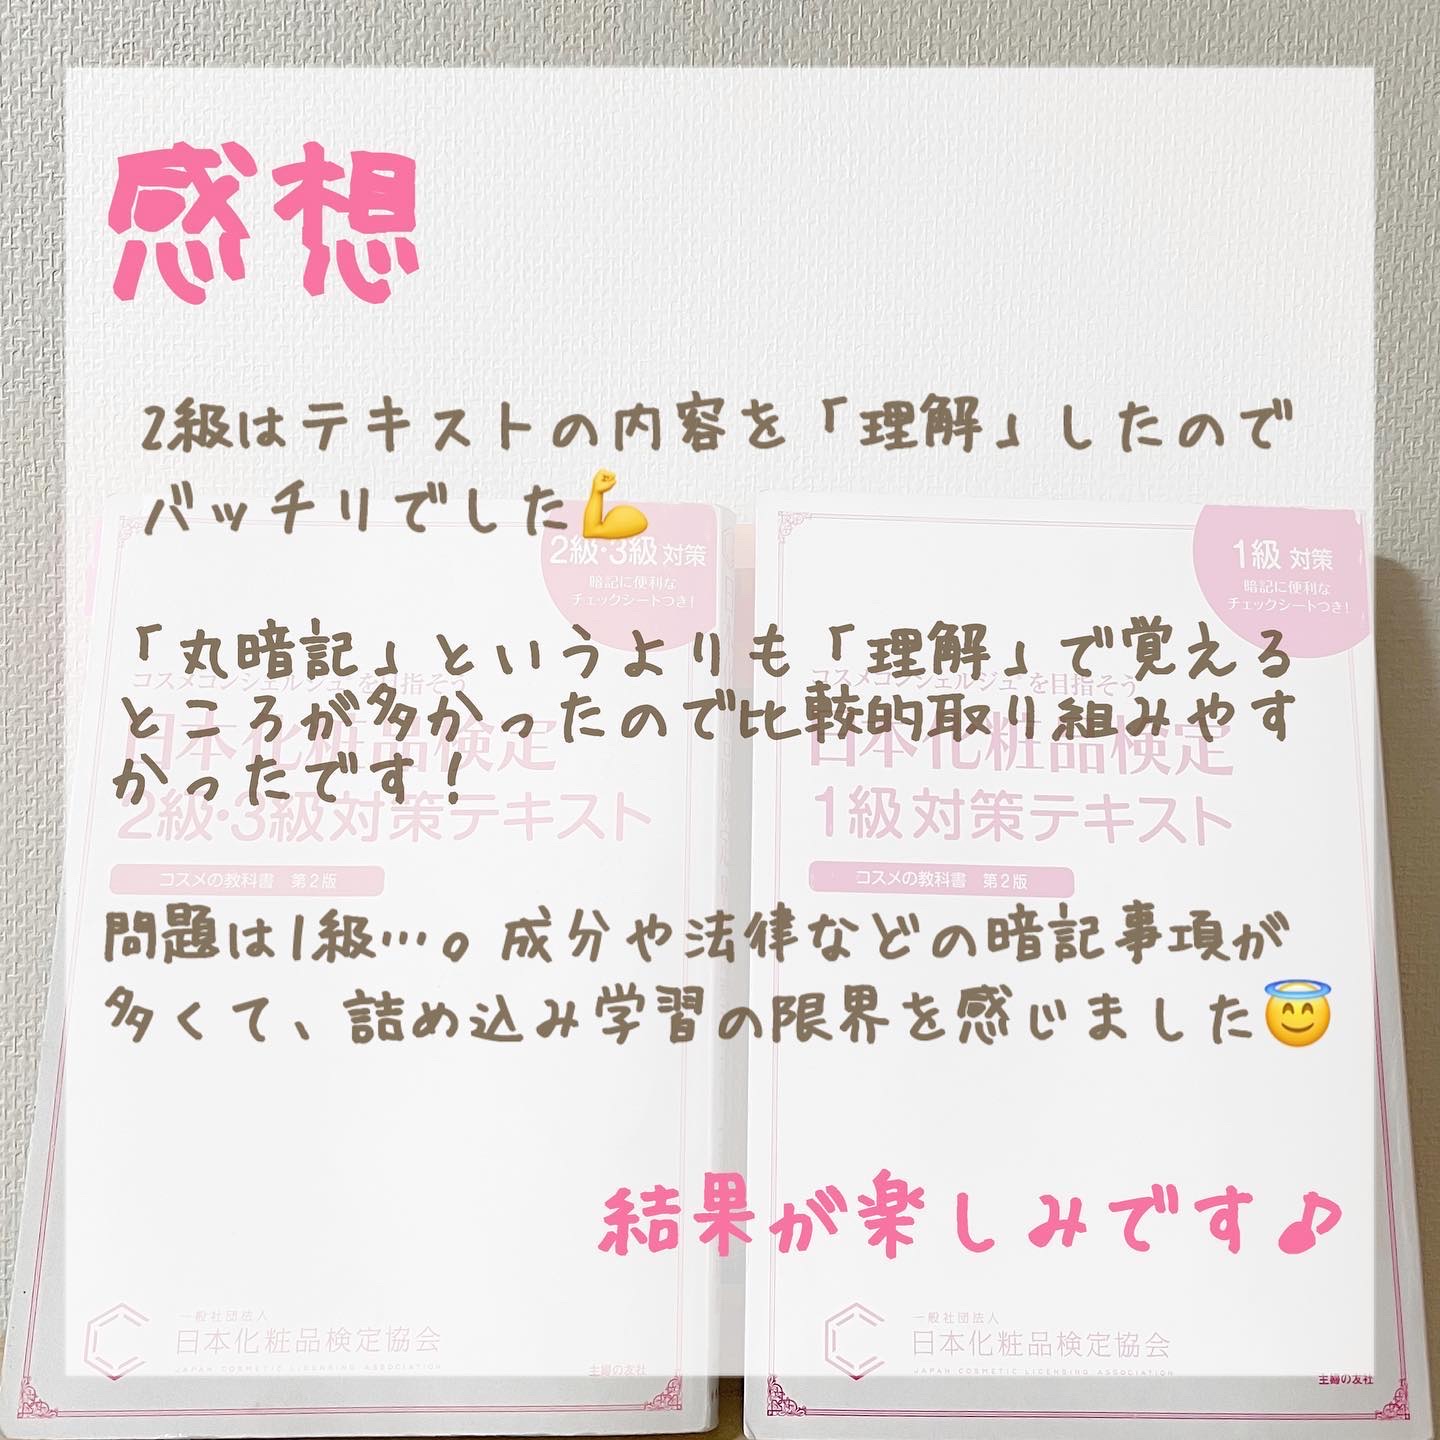 感想
2級はテキストの内容を「理解」したので
バッチリでした💪
「丸暗記」というよりも「理解」で覚える
ところが多かったので比較的取り組みやす
かったです！
問題は1級…。成分や法律などの暗記事項が
多くて、詰め込み学習の限界を感じました😇
結果が楽しみです♪
2級・3級 対策
暗記に便利な
チェックシートつき！
コスメコンシェルジュを目指そう
日本化粧品検定
2級・3級対策テキスト
コスメの教科書 第2版
一般社団法人
日本化粧品検定協会
JAPAN COSMETIC LICENSING ASSOCIATION
主婦の友社
1級 対策
暗記に便利な
チェックシートつき！
コスメコンシェルジュを目指そう
日本化粧品検定
1級対策テキスト
コスメの教科書 第2版
一般社団法人
日本化粧品検定協会
JAPAN COSMETIC LICENSING ASSOCIATION
主婦の友社